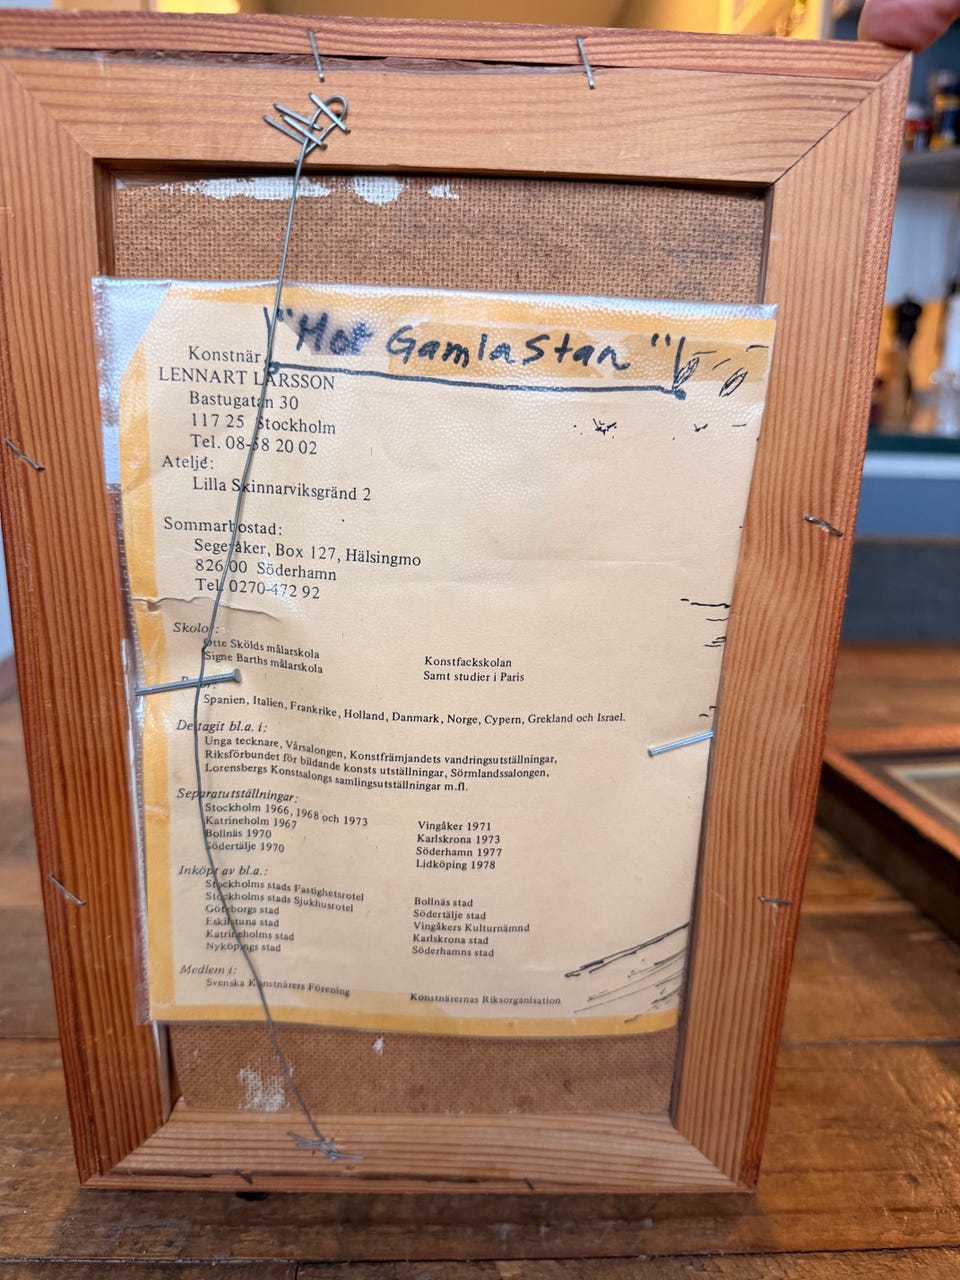 "Mot Gamla Stan"
Konstnär
LENNART LARSSON
Bastugatan 30
117 25 Stockholm
Tel. 08-58 20 02
Ateljé:
Lilla Skinnarviksgränd 2
Sommarbostad:
Segeråker, Box 127, Hälsingmo
826 00 Söderhamn
Tel. 0270-472 92
Skolor:
Otte Skölds målarskola
Signe Barths målarskola
Konstfackskolan
Samt studier i Paris
Spanien, Italien, Frankrike, Holland, Danmark, Norge, Cypern, Grekland och Israel.
Deltagit bl.a. i:
Unga tecknare, Vårsalongen, Konstfrämjandets vandringsutställningar,
Riksförbundet för bildande konsts utställningar, Sörmlandssalongen,
Lorensbergs Konstsalongs samlingsutställningar m.fl.
Separatutställningar:
Stockholm 1966, 1968 och 1973
Katrineholm 1967
Bollnäs 1970
Södertälje 1970
Vingåker 1971
Karlskrona 1973
Söderhamn 1977
Lidköping 1978
Inköpt av bl.a.:
Stockholms stads Fastighetsrotel
Stockholms stads Sjukhusrotel
Göteborgs stad
Eskilstuna stad
Katrineholms stad
Nyköpings stad
Bollnäs stad
Södertälje stad
Vingåkers Kulturnämnd
Karlskrona stad
Söderhamns stad
Medlem i:
Svenska Konstnärers Förening
Konstnärernas Riksorganisation